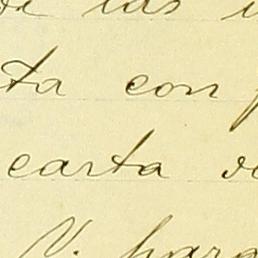 de las
ta con
carta
V. para